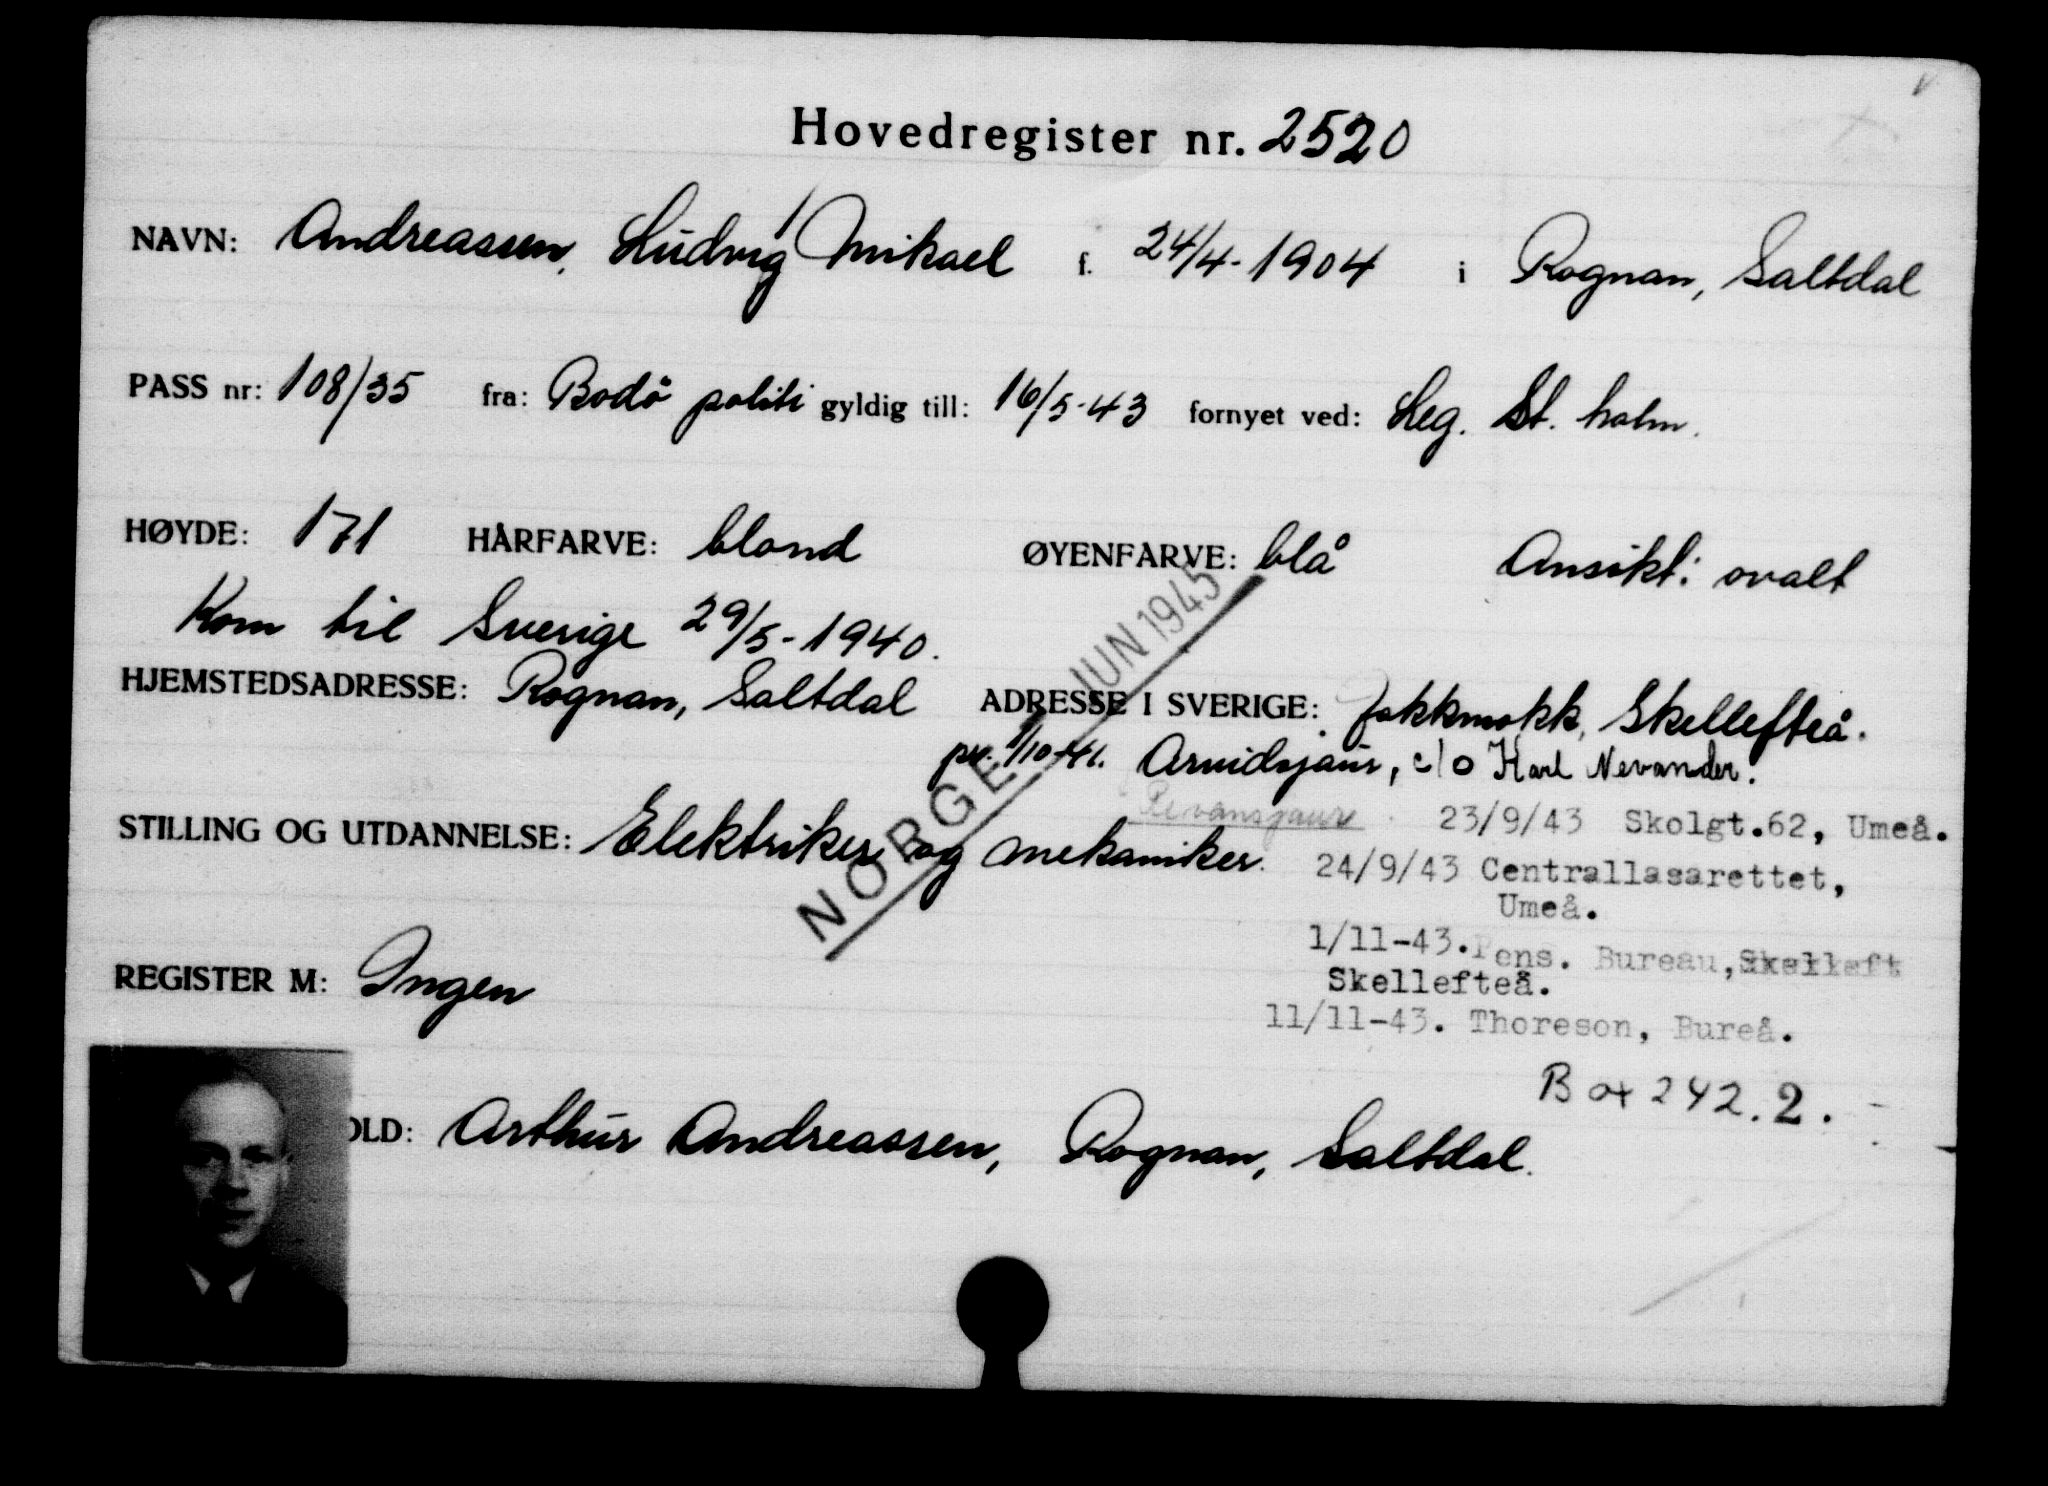 Hovedregister nr. 2520
NAVN: Andreassen, Ludvig Mikael f. 24/4-1904 i Rognan, Saltdal
PASS nr: 108/35 fra: Bodö politi gyldig till: 16/5-43 fornyet ved: Leg. St. holm.
HØYDE: 171 HÅRFARVE: blond ØYENFARVE: blå Ansikt: ovalt
Kom til Sverige 29/5-1940.
HJEMSTEDSADRESSE: Rognan, Saltdal ADRESSE I SVERIGE: Jokkmokk, Skellefteå.
pr. 1/10-41. Arvidsjaur, c/o Karl Nevander.
NORGE JUN 1945
23/9/43 Skolgt.62, Umeå.
STILLING OG UTDANNELSE: Elektriker og mekaniker.
24/9/43 Centrallasarettet,
Umeå.
1/11-43. Pens. Bureau, Skelleft
REGISTER M: Ingen
Skellefteå.
11/11-43. Thoreson, Bureå.
Box 242.2.
OLD: Arthur Andreassen, Rognan, Saltdal.